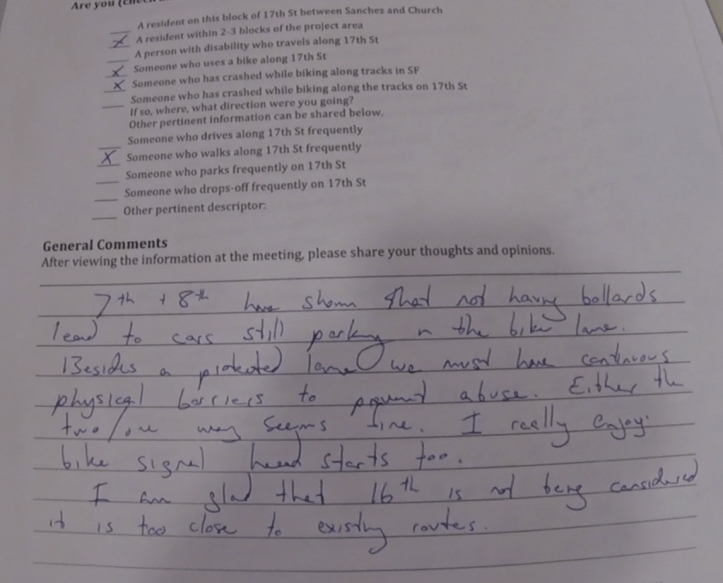 Are you
A resident on this block of 17th St between Sanchez and Church
X A resident within 2-3 blocks of the project area
A person with disability who travels along 17th St
X Someone who uses a bike along 17th St
X Someone who has crashed while biking along tracks in SF
Someone who has crashed while biking along the tracks on 17th St
If so, where, what direction were you going?
Other pertinent information can be shared below.
Someone who drives along 17th St frequently
X Someone who walks along 17th St frequently
Someone who parks frequently on 17th St
Someone who drops-off frequently on 17th St
Other pertinent descriptor:
General Comments
After viewing the information at the meeting, please share your thoughts and opinions.
7th + 8th have shown that not having bollards
lead to cars still parking in the bike lane.
Besides a protected lane we must have continuous
physical barriers to prevent abuse. Either the
two/one way seems fine. I really enjoy
bike signal head starts too.
I am glad that 16th is not being considered
it is too close to existing routes.